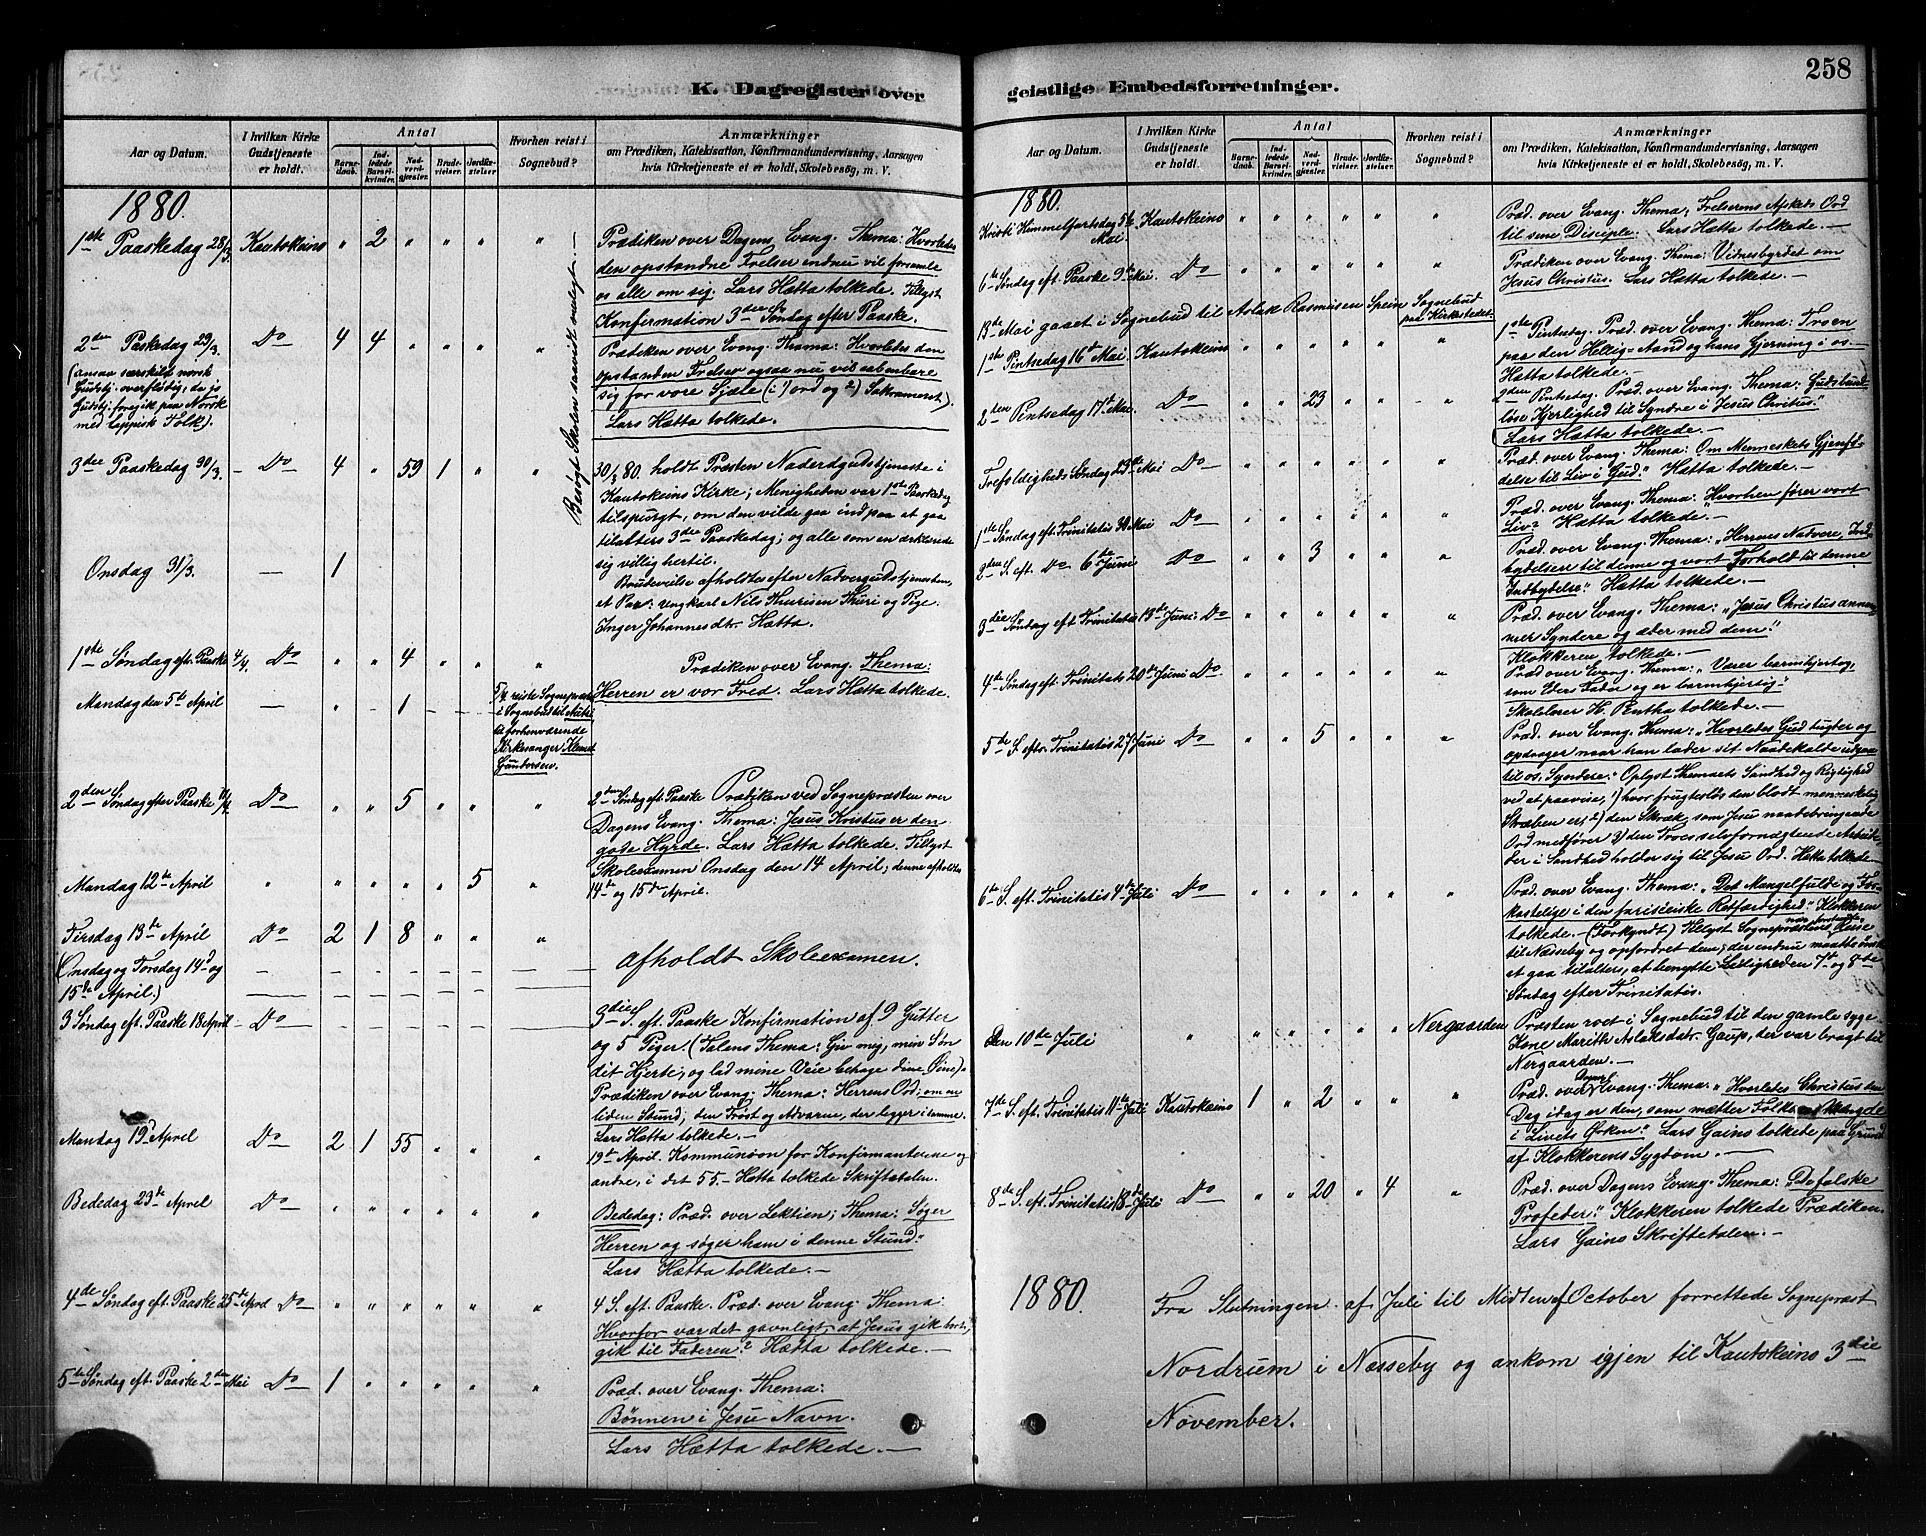 258
K. Dagregister over
geistlige Embedsforretninger.
Aar og Datum.
I hvilken Kirke
Gudstjeneste
er holdt.
Antal
Barne-
daab.
Ind-
ledede
Barsel-
kvinder.
Nad-
verd-
gjester.
Brude-
vielser.
Jordfæ-
stelser.
Hvorhen reist i
Sognebud?
Anmærkninger
om Prædiken, Katekisation, Konfirmandundervisning, Aarsagen
hvis Kirketjeneste et er holdt, Skolebesøg, m. V.
1880.
1ste Paaskedag 28/3. Kautokeino " 2 " " " "
Prædiken over Dagens Evang. Thema: Hvorledes
den opstandne Frelser endnu vil forsamle
os alle om sig. Lars Hætta tolkede. Tillyst
Konfirmation 3die Søndag efter Paaske.
Besøgt Skolen saavidt muligt.
2den Paskedag 29/3. Do 4 4 " " " "
(ansaa særskild norsk
Gudstj. overflødig, da jo
Gudstj. foregik paa Norsk
med lappisk Tolk).
Prædiken over Evang. Thema: Hvorledes den
opstanden Frelser ogsaa nu vil aabenbare
sig for vore Sjæle (i 1) ord og 2) Sakramenet).
Lars Hætta tolkede.
3die Paaskedag 30/3. Do 4 " 59 1 " "
30/3 80. holdt Præsten Naderdgudstjeneste i
Kautokeino Kirke; Menigheden var 1ste Paaskedag
tilspurgt, om den vilde gaa ind paa at gaa
tilalters 3die Paaskedag; og alle som en erklærede
sig villig hertil.
Brudevielse afholdtes efter Nadvergudstjenesten,
et Par: ungkarl Nils Thurisen Thuri og Pige
Inger Johannesdtr. Hætta.
Onsdag 31/3. — 1
1ste Søndag eft. Paaske 4/4. Do " " 4 " " "
Prædiken over Evang. Thema:
Herren er vor Fred. Lars Hætta tolkede.
Mandag den 5te April — " - 1 — —
5/4 reiste Sognepræst
i Sognebud til
til forhenværende
Kirkesanger Klemet
Gundersen.
2den Søndag efter Paaske 11/4. Do " " 5 " " "
2den Søndag eft. Paaske Prædiken ved Sognepræsten over
Dagens Evang. Thema: Jesus Kristus er den
gode Hyrde. Lars Hætta tolkede. Tillyst
Skoleexamen Onsdag den 14 April; denne afholdtes
14de og 15de April.
Mandag 12te April " " " " " 5 "
Tirsdag 13de April Do 2 1 8 " " "
Onsdag og Torsdag 14d og
15de April.)
afholdt Skoleexamen.
3 Søndag eft. Paaske 18 April Do
3die S. eft. Paaske Konfirmation af 9 Gutter
og 5 Piger. (Talens Thema: Giv mig, min Søn
dit Hjerte, og lad mine Veie behage dine Øine).
Prædiken over Evang. Thema: Herrens Ord; om en
liden Stund, den Trøst og Advarne, der ligger i samme.
Lars Hætta tolkede.
Mandag 19d April Do 2 1 55 " " "
19de April. Kommunion for Konfirmanterne og
andre, i det 55. Hætta tolkede Skriftetalen.
Bededag 23de April Do " " " " " "
Bededag: Præd. over Lektien; Thema: Søger
Herren og søger ham i denne Stund."
Lars Hætta tolkede.
4de Søndag eft. Paaske 25de April Do " " " " " "
4 S. eft. Paaske. Præd. over Evang. Thema:
Hvorfor var det gavnligt, at Jesus gik bort,
gik til Faderen? Hætta tolkede.
5te Søndag eft. Paaske 2den Mai Do 1 " " " " "
Præd. over Evang. Thema:
Bønnen i Jesu Navn.
Lars Hætta tolkede.
Aar og Datum.
I hvilken Kirke
Gudstjeneste
er holdt.
Antal
Barne-
daab.
Ind-
ledede
Barsel-
kvinder.
Nad-
verd-
gjester.
Brude-
vielser.
Jordfæ-
stelser.
Hvorhen reist i
Sognebud?
Anmærkninger
om Prædiken, Katekisation, Konfirmandundervisning, Aarsagen
hvis Kirketjeneste et er holdt, Skolebesøg, m. V.
1880.
Kristi Himmelfartsdag Mai Kautokeino " " " " " "
Præd. over Evang. Thema: Frelserens Afskeds Ord
til sine Disciple. Lars Hætta tolkede.
6te Søndag eft. Paaske 9de Mai. Do " " " " " "
Prædiken over Evang. Thema: Vidnesbyrdet om
Jesus Christus. Lars Hætta tolkede.
13de Mai gaaet i Sognebud til Aslak Rasmusen Spein Sognebud
paa Kirkestedet.
1ste Pintsedag 16de Mai. Kautokeino " " " " " "
1ste Pintsedag. Præd. over Evang. Thema: Troen
paa den Hellig-Aand og hans Gjerning i os.
Hætta tolkede.
2den Pentsedag 17de Mai. Do " " 23 " " "
2den Pintsedag. Præd. over Evang. Thema: Guds bund-
løse Kjerlighed til Syndre i Jesus Christus."
Lars Hætta tolkede.
Trefoldigheds Søndag 23de Mai Do " " " " " "
Præd. over Evang. Thema: Om Menneskets Gjenfø-
delse til Liv i Gud." Hætta tolkede.
1ste Søndag eft. Trinitatis 30 Mai Do " " " " " "
Præd. over Evang. Thema: "Hvorhen fører vort
Liv? Hætta tolkede.
2den S. eft. Do 6te Juni Do " " 3 " " "
Præd. over Evang. Thema: "Herrens Nadvere, Ind-
bydelsen til denne og vort Forhold til denne
Indbydelse." Hætta tolkede.
3die Søndag eft. Trinitatis 13de Juni: Do " " " " " "
Præd. over Evang. Thema: "Jesus Christus annam-
mer Syndere og æder med dem."
Klokkeren tolkede.
4de Søndag eft. Trinitatis 20de Juni Do " " " " " "
Præd over Evang. Thema: "Værer barmhjertog,
som Eders Fader og er barmhjertig."
Skolelærer H. Pentha tolkede.
5te S. efter Trinitatis 27 Juni Do " " 5 " " "
Præd. over Evang. Thema: "Hvorledes Gud tugter og
opdrager naar han lader sit Naadekalde udgaa
til os, Syndere." Oplyst Themaets Sandhed og Rigtighed
ved at paavise, 1) hvor frugtesløs den blodt menneskelig
Stræben er; 2) den Skræk, som Jesu naadebringende
Ord medfører 3) den Troens selvfornegtende Arbeide,
der i Sandhed holder sig til Jesu Ord. Hætta tolkede.
6te S. eft. Trinitatis 4de Juli Do " " " " " "
Præd. over Evang. Thema: "Det Mangelfulde og For-
kastelige i den farisæiske Retfærdighed." Klokkeren
tolkede. (Forkyndt) Tillyst Sognepræstens nær forstaaende Reise
til Næsseby og opfordret dem, der endnu maatte ønske
at gaa tilalters, at benytte Leiligheden 7de og 8de
Søndag efter Trinitatis.
Den 10de Juli " " " " " " Nergaarden
Præsten roet i Sognebud til den gamle syge
Kone Marith Aslaksdatr. Gaup, der var bragt til
Nergaarden.
7de S. eft. Trinitatis 11te Juli Kautokeino 1 " 2 " " "
Præd. over Dagens Evang. Thema: "Hvorledes Christus den
Dag idag er den, som mætter Folkets Mængde
i Livets Ørken." Lars Gaino tolkede paa Grund
af Klokkerens Sygdom.
8de S. eft. Trinitatis 18de Juli Do " " 20 " 4 "
Præd. over Dagens Evang. Thema: "De falske
Profeter." Klokkeren tolkede Prædiken.
Lars Gaino Skriftetalen.
1880. Fra Slutningen af Juli til Midten af October forrettede Sognepræst
Nordrum i Næsseby og ankom igjen til Kautokeino 3die
November.